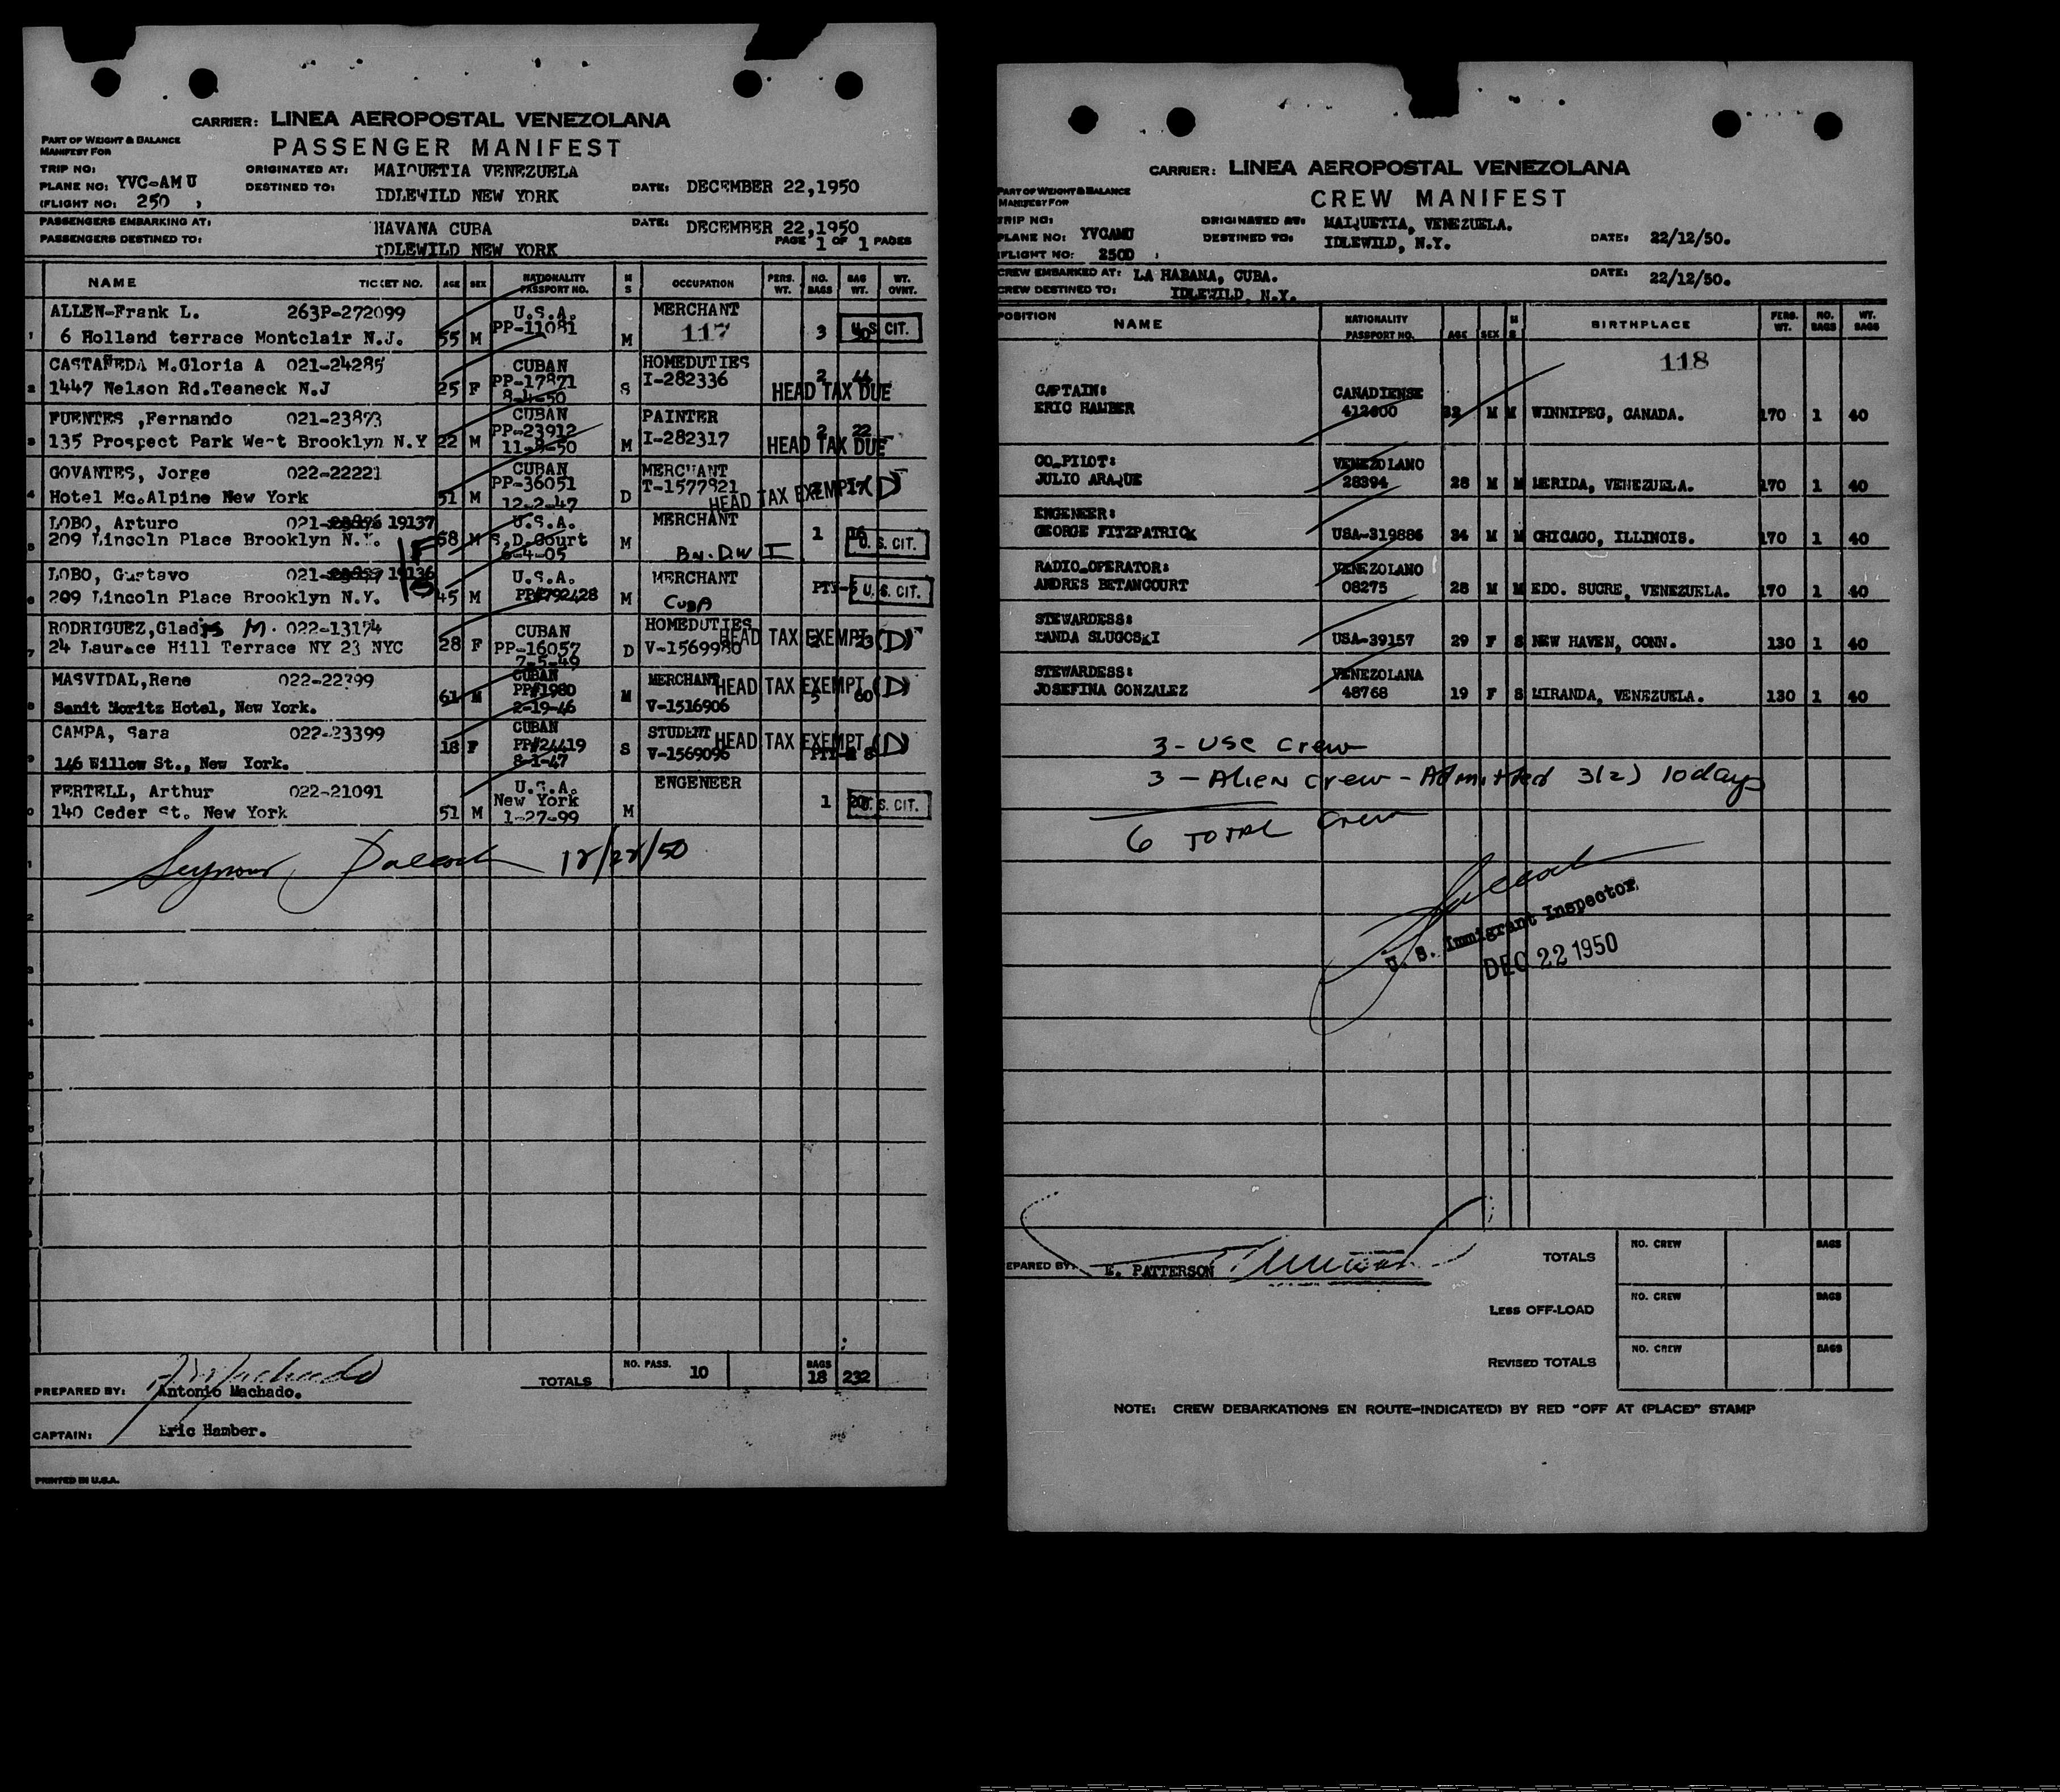 CARRIER: LINEA AEROPOSTAL VENEZOLANA
PART OF WEIGHT & BALANCE
MANIFEST FOR
PASSENGER MANIFEST
TRIP NO: ORIGINATED AT: MAIQUETIA VENEZUELA
PLANE NO: YVC-AMU DESTINED TO: IDLEWILD NEW YORK DATE: DECEMBER 22,1950
(FLIGHT NO: 250 )
PASSENGERS EMBARKING AT: HAVANA CUBA DATE: DECEMBER 22,1950
PASSENGERS DESTINED TO: IDLEWILD NEW YORK PAGE 1 OF 1 PAGES
NAME TICKET NO. AGE SEX NATIONALITY PASSPORT NO. M S OCCUPATION PERS. WT. NO. BAGS BAG WT. WT. OVNT.
ALLEN-Frank L. 263P-272099 U.S.A. MERCHANT
1 6 Holland terrace Montclair N.J. 55 M PP-11081 M 117 3 U.S. CIT.
CASTAÑEDA M.Gloria A 021-24285 CUBAN HOMEDUTIES
2 1447 Nelson Rd.Teaneck N.J 25 F PP-17871 S I-282336 2 44 HEAD TAX DUE
8-4-50
FUENTES ,Fernando 021-23873 CUBAN PAINTER
3 135 Prospect Park West Brooklyn N.Y 22 M PP-23912 M I-282317 2 22 HEAD TAX DUE
11-8-50
GOVANTES, Jorge 022-22221 CUBAN MERCHANT
4 Hotel Mc.Alpine New York 51 M PP-36051 D T-1577821 HEAD TAX EXEMPT (D)
12-2-47
LOBO, Arturo 021- 19137 U.S.A. MERCHANT
5 209 Lincoln Place Brooklyn N.Y. 68 M S.D.Court M 1 U.S. CIT.
6-4-05
LOBO, Gustavo 021- 19136 U.S.A. MERCHANT
6 209 Lincoln Place Brooklyn N.Y. 45 M PP#792428 M CUBA U.S. CIT.
RODRIGUEZ,Gladys M. 022-13154 CUBAN HOMEDUTIES
7 24 Laurace Hill Terrace NY 23 NYC 28 F PP-16057 D V-1569980 HEAD TAX EXEMPT (D)
7-5-49
MASVIDAL,Rene 022-22399 CUBAN MERCHANT
8 Sanit Moritz Hotel, New York. 61 M PP#1980 M V-1516906 5 60 HEAD TAX EXEMPT (D)
2-19-46
CAMPA, Sara 022-23399 CUBAN STUDENT
9 146 Willow St., New York. 18 F PP#24419 S V-1569096 HEAD TAX EXEMPT (D)
8-1-47
FERTELL, Arthur 022-21091 U.S.A. ENGENEER
0 140 Ceder St. New York 51 M New York M 1 20 U.S. CIT.
1-27-99
Seymour 12/22/50
TOTALS NO. PASS. 10 BAGS 18 232
PREPARED BY: Antonio Machado.
CAPTAIN: Eric Hamber.
PRINTED IN U.S.A.
CARRIER: LINEA AEROPOSTAL VENEZOLANA
PART OF WEIGHT & BALANCE
MANIFEST FOR
CREW MANIFEST
TRIP NO: ORIGINATED AT: MAIQUETIA, VENEZUELA.
PLANE NO: YVCAMU DESTINED TO: IDLEWILD, N.Y. DATE: 22/12/50.
(FLIGHT NO: 250D )
CREW EMBARKED AT: LA HABANA, CUBA. DATE: 22/12/50.
CREW DESTINED TO: IDLEWILD, N.Y.
POSITION NAME NATIONALITY PASSPORT NO. AGE SEX M S BIRTHPLACE PERS. WT. NO. BAGS WT. BAGS
118
CAPTAIN: CANADIENSE
ERIC HAMBER 412600 M M WINNIPEG, CANADA. 170 1 40
CO_PILOT: VENEZOLANO
JULIO ARAQUE 28394 28 M M MERIDA, VENEZUELA. 170 1 40
ENGENEER:
GEORGE FITZPATRICK USA-319886 34 M M CHICAGO, ILLINOIS. 170 1 40
RADIO_OPERATOR: VENEZOLANO
ANDRES BETANCOURT 08275 28 M M EDO. SUCRE, VENEZUELA. 170 1 40
STEWARDESS:
WANDA SLUGOSKI USA-39157 29 F S NEW HAVEN, CONN. 130 1 40
STEWARDESS: VENEZOLANA
JOSEFINA GONZALEZ 48768 19 F S MIRANDA, VENEZUELA. 130 1 40
3 - USC Crew
3 - Alien crew - Admitted 3(2) 10 days
6 TOTAL Crew
U. S. Immigrant Inspector
DEC 22 1950
EPARED BY: E. PATTERSON
TOTALS NO. CREW BAGS
LESS OFF-LOAD NO. CREW BAGS
REVISED TOTALS NO. CREW BAGS
NOTE: CREW DEBARKATIONS EN ROUTE-INDICATE(D) BY RED "OFF AT (PLACE)" STAMP